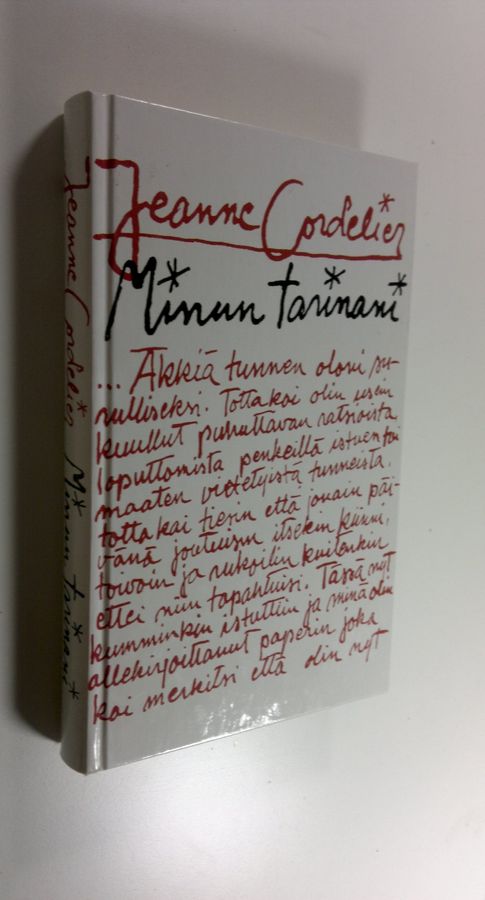 Jeanne Cordelier
Minun tarinani
... Äkkiä tunnen oloni su-
rulliseksi. Totta kai olin usein
kuullut puhuttavan ratsioista
loputtomista penkeillä istuen tai
maaten vietetyistä tunneista.
totta kai tiesin että jonain päi-
vänä joutuisin itsekin kiinni,
toivoin ja rukoilin kuitenkin
ettei niin tapahtuisi. Tässä nyt
kumminkin istuttiin ja minä olin
allekirjoittanut paperin joka
kai merkitsi että olin nyt
Jeanne Cordelier Minun tarinani